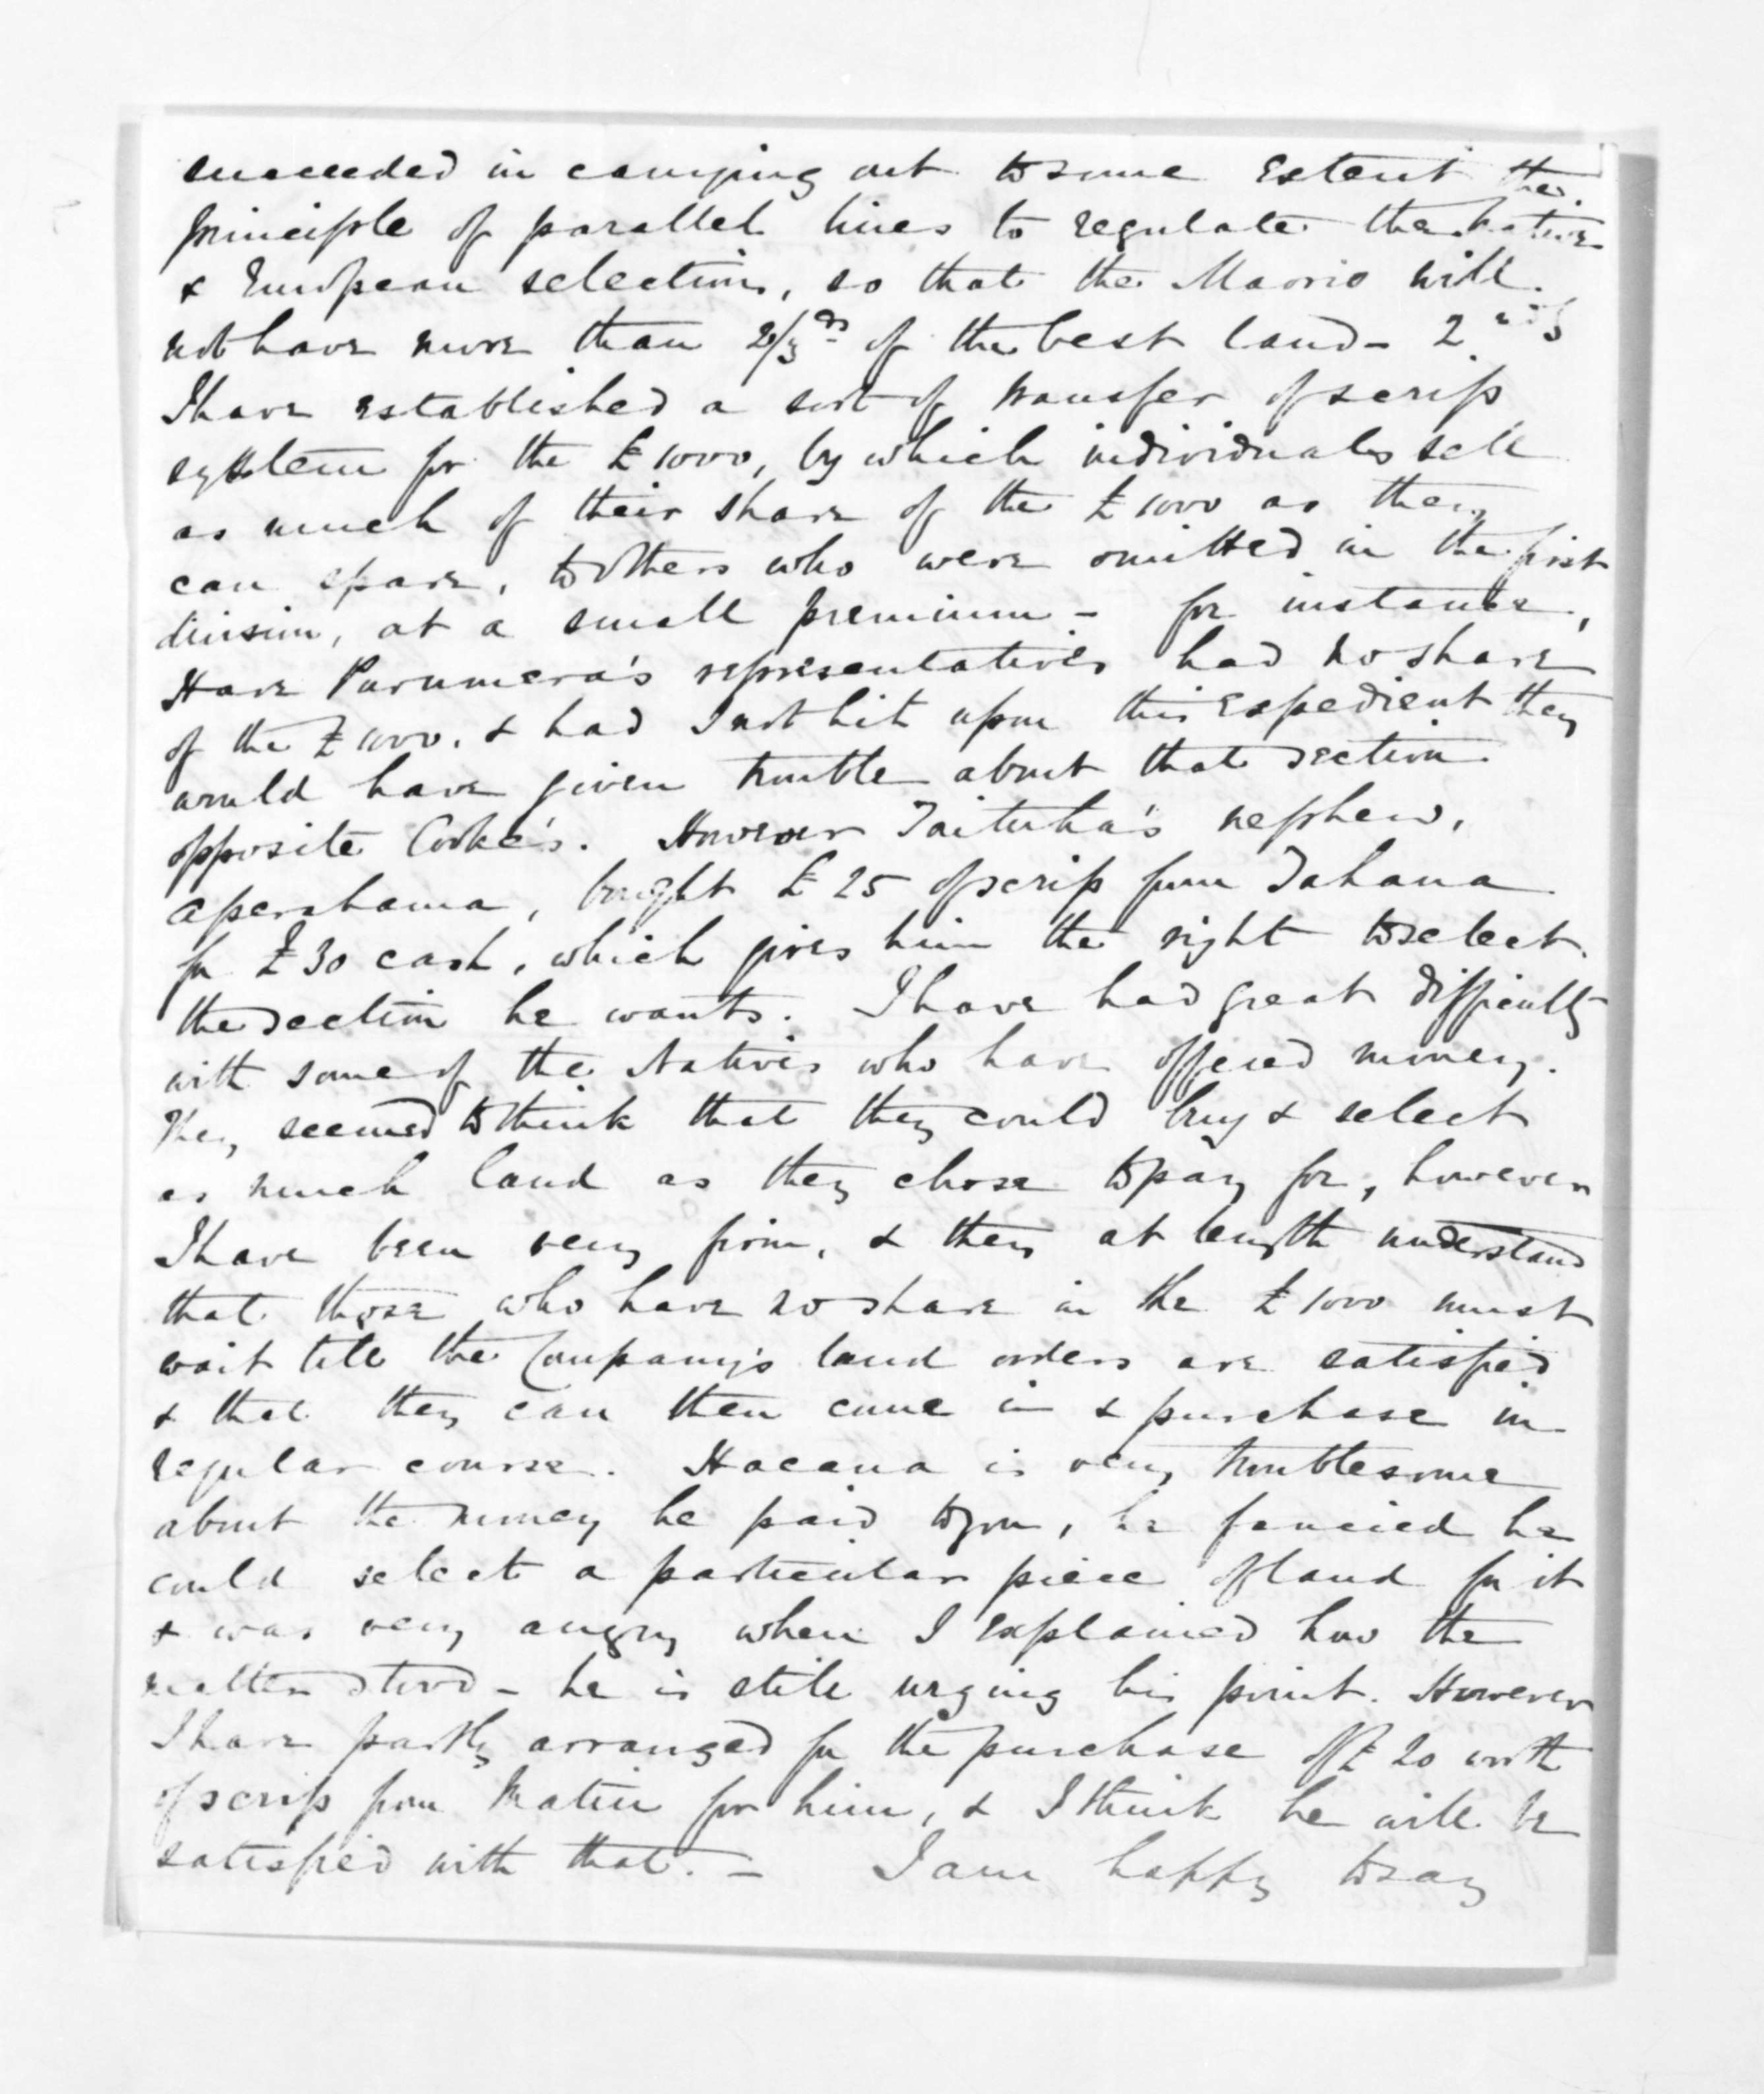 succeeded in carrying out to some extent the
principle of parallel lines to regulate the Native
& European selections, so that the Maoris will
not have more than 2/3ds of the best land - 2ndly
I have established a sort of transfer of scrip
system for the £1000, by which individuals sell
as much of their share of the £1000 as they
can spare, to others who were omitted in the first
division, at a small premium - for instance,
Hare Parumera's representatives had no share
of the £1000, & had I not hit upon this expedient they
would have given trouble about that section
opposite Cooke's. However Taituha's nephew,
Aperahama, bought £25 of scrip from Tahana
for £30 cash, which gives him the right to select
the section he wants. I have had great difficulty
with some of the Natives who have offered money.
They seemed to think that they could buy & select
as much land as they chose to pay for, however
I have been very firm, & they at length understand
that those who have no share in the £1000 must
wait till the Company's land orders are satisfied
& that they can then come in & purchase in
regular course. Hacana is very troublesome
about the money he paid to you, he fancied he
could select a particular piece of land for it
& was very angry when I explained how the
matter stood - he is still urging his point. However
I have partly arranged for the purchase of £20 worth
of scrip from Matiu for him, & I think he will be
satisfied with that. - I am happy to say